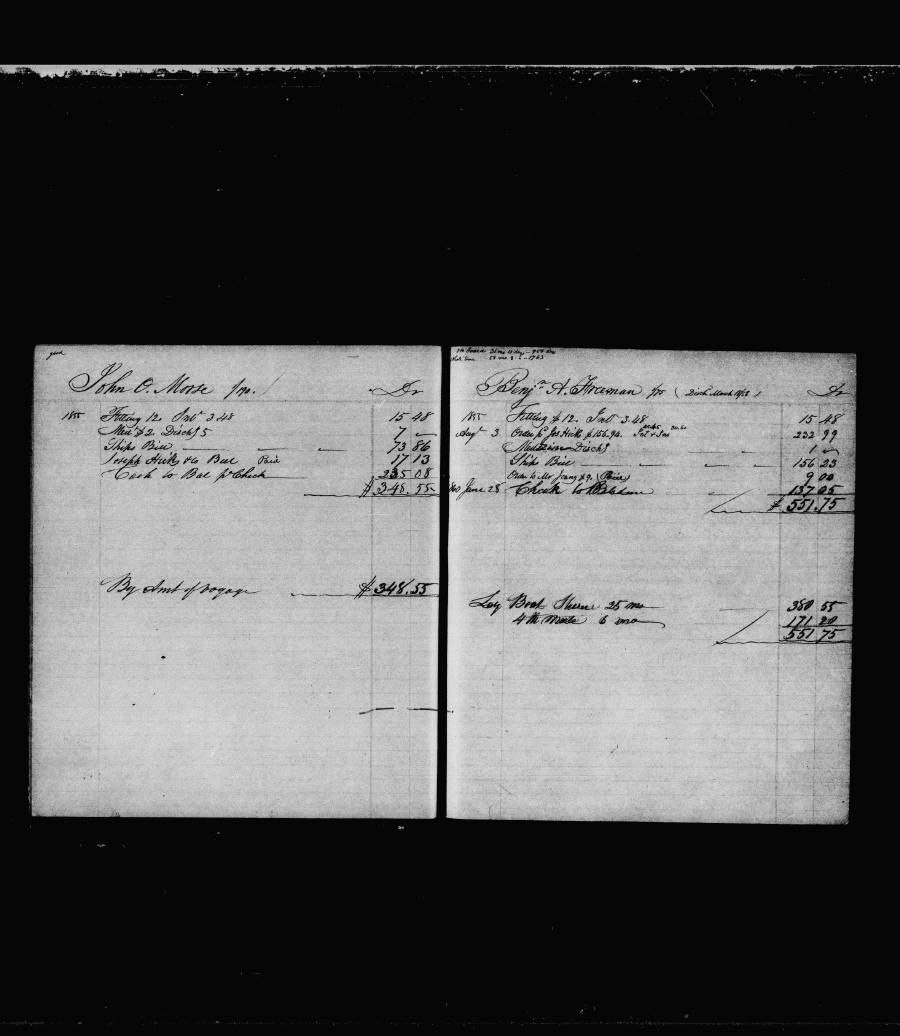 good
John O. Morse 1/190. Dr
1855 Fitting 12. Int 3.48 15 48
Med $2. Disch $5 7 —
Ships Bill 73 86
Joseph Hicks & Co Bill Paid 17 13
Cash to Bal pr Check 235 08
$ 348.55
By Amt of voyage $ 348.55
on board
Benjn A. Freeman 1/75 (Disch March 1/58) Dr
1855 Fitting $12. Int 3.48 15 48
Augt 3. Order pr Jos Hicks $156.94. Int & Ins 232 99
Medicine Disch 1
Ships Bill 156 23
Order to Mr $9. (Paid) 9 00
June 25 Check to Balance 137 05
$ 551.75
Lay Boat Steerer 25 mo 380 55
4th Mate 6 mo 171 20
551 75